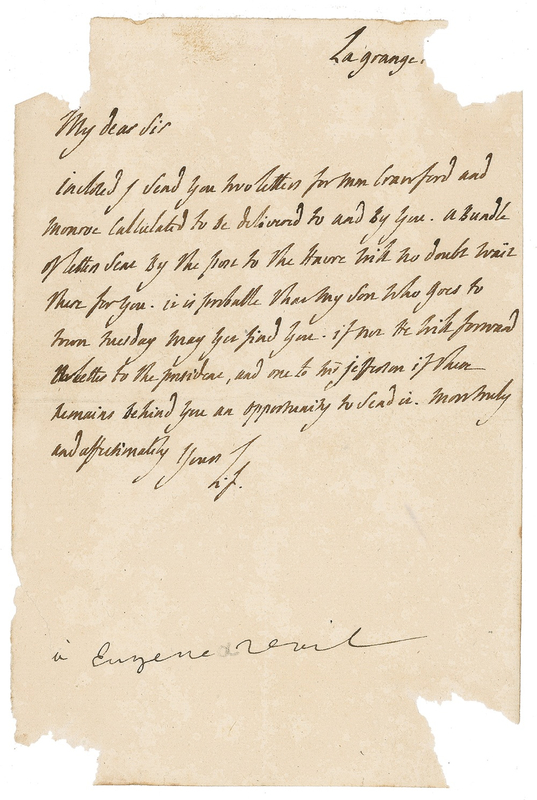 La grange.
My dear Sir
inclosed j Send you two letters for mm Crawford and
monroe Calculated to be delivered to and By you. a Bundle
of letters Sent By the post to the havre will no doubt wait
there for you. it is probable that my Son who goes to
town tuesday may yet find you. if not he will forward
the letter to the president, and one to mr jefferson if there
remains behind you an opportunity to Send it. Most truly
and affectionately Yours
L.f.
à Eugene